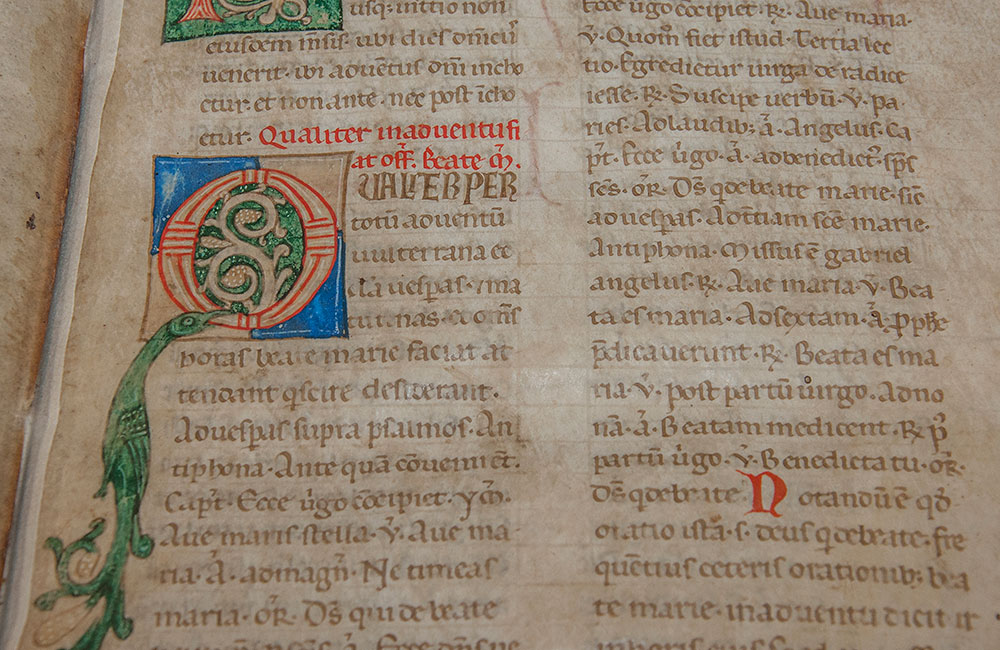 usq; initio non
eiusdem insis. ubi dies dom̄cu
uenerit. ibi aduentus dn̄i incho
etur. et non ante. nec post īcho
etur. Qualiter in aduentu fi
at off̄. Beate m̄.
QUALITER PER
totū aduentū
uespas
horas beate marie faciat at
tendant qi scire desiderant.
Ad uespas supra psalmos. An
tiphona. Ante quā cōueniēt.
Cap̄t. Ecce u̾go cōcipiet. ym̄.
Aue maris stella. V̾. Aue ma
ria. A̾. ad magn̄. Ne timeas
maria. or̄. Ds̄ qui de beate
Ecce u̾go cōcipiet. R̷. Aue maria.
V̾. Quom̄ fiet istud. Tertia lec
tio. Egredietur uirga de radice
iesse. R̷. Suscipe uerbū. V̾. pa
ries. Ad laudib; a̾. Angelus. Ca
pt̄. Ecce u̾go. A̾. ad benedict̾. sp̄c
sc̄s. or̄. Ds̄ q de beate marie. sic̄
ad uespas. Ad t̄tiam sc̄e marie.
Antiphona. Missus ē gabriel
angelus. R̷. Aue maria. V̾. Bea
ta es maria. Ad sextam. a̾. pphe
p̄dicauerunt. R̷. Beata es ma
ria. V̾. post partū uirgo. Ad no
nā. a̾. Beatam me dicent. R̷. p̾
partū u̾go. V̾. Benedicta tu. or̄.
Ds̄ q de beate. Notandū ē qd̾
oratio ista. s. deus q de beate. fre
quētius ceteris orationib; bea
te marie. in aduentu dicit ir